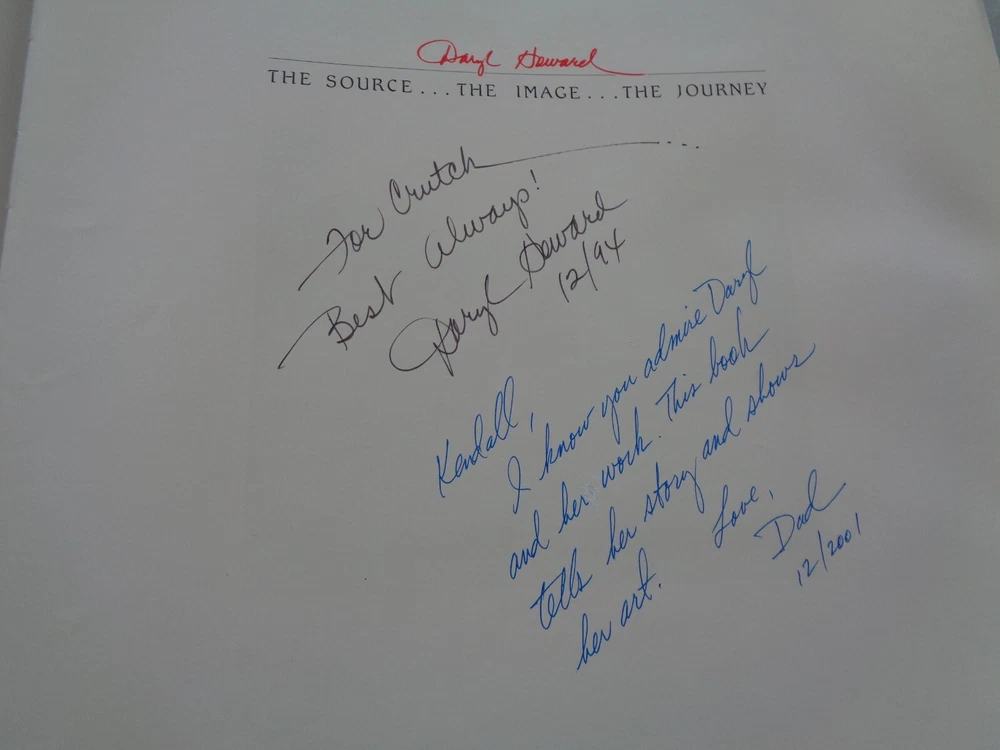 Daryl Howard
THE SOURCE...THE IMAGE...THE JOURNEY
For Crutch ...
Best Always!
Daryl Howard
12/94
Kendall,
I know you admire Daryl
and her work. This book
tells her story and shows
her art.
Love,
Dad
12/2001